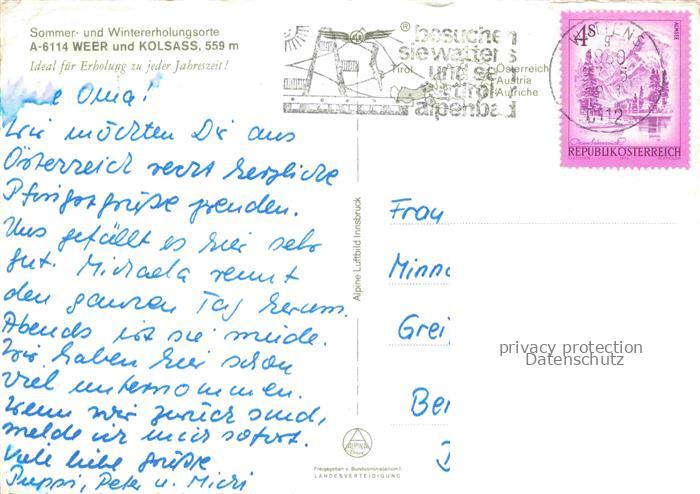 Sommer- und Wintererholungsorte
A-6114 WEER und KOLSASS, 559 m
Ideal für Erholung zu jeder Jahreszeit!
Oma!
Wir möchten Dir aus
Österreich recht herzliche
Pfingstgrüße senden.
Uns gefällt es hier sehr
gut. Michaela rennt
den ganzen Tag herum.
Abends ist sie müde.
Wir haben hier schon
viel unternommen.
Wenn wir zurück sind,
melde ich mich sofort.
Viele liebe Grüße
Puppi, Peter u. Michi
besuchen
sie wattens
und se
alpenbad
Tirol
Österreich
Austria
Autriche
WATTENS
1980
6112
4s
ALMSEE
REPUBLIK ÖSTERREICH
Alpine Luftbild Innsbruck
Frau
Minn
Grei
Ber
privacy protection
Datenschutz
ALPINE
Freigegeben v. Bundesministerium f.
LANDESVERTEIDIGUNG